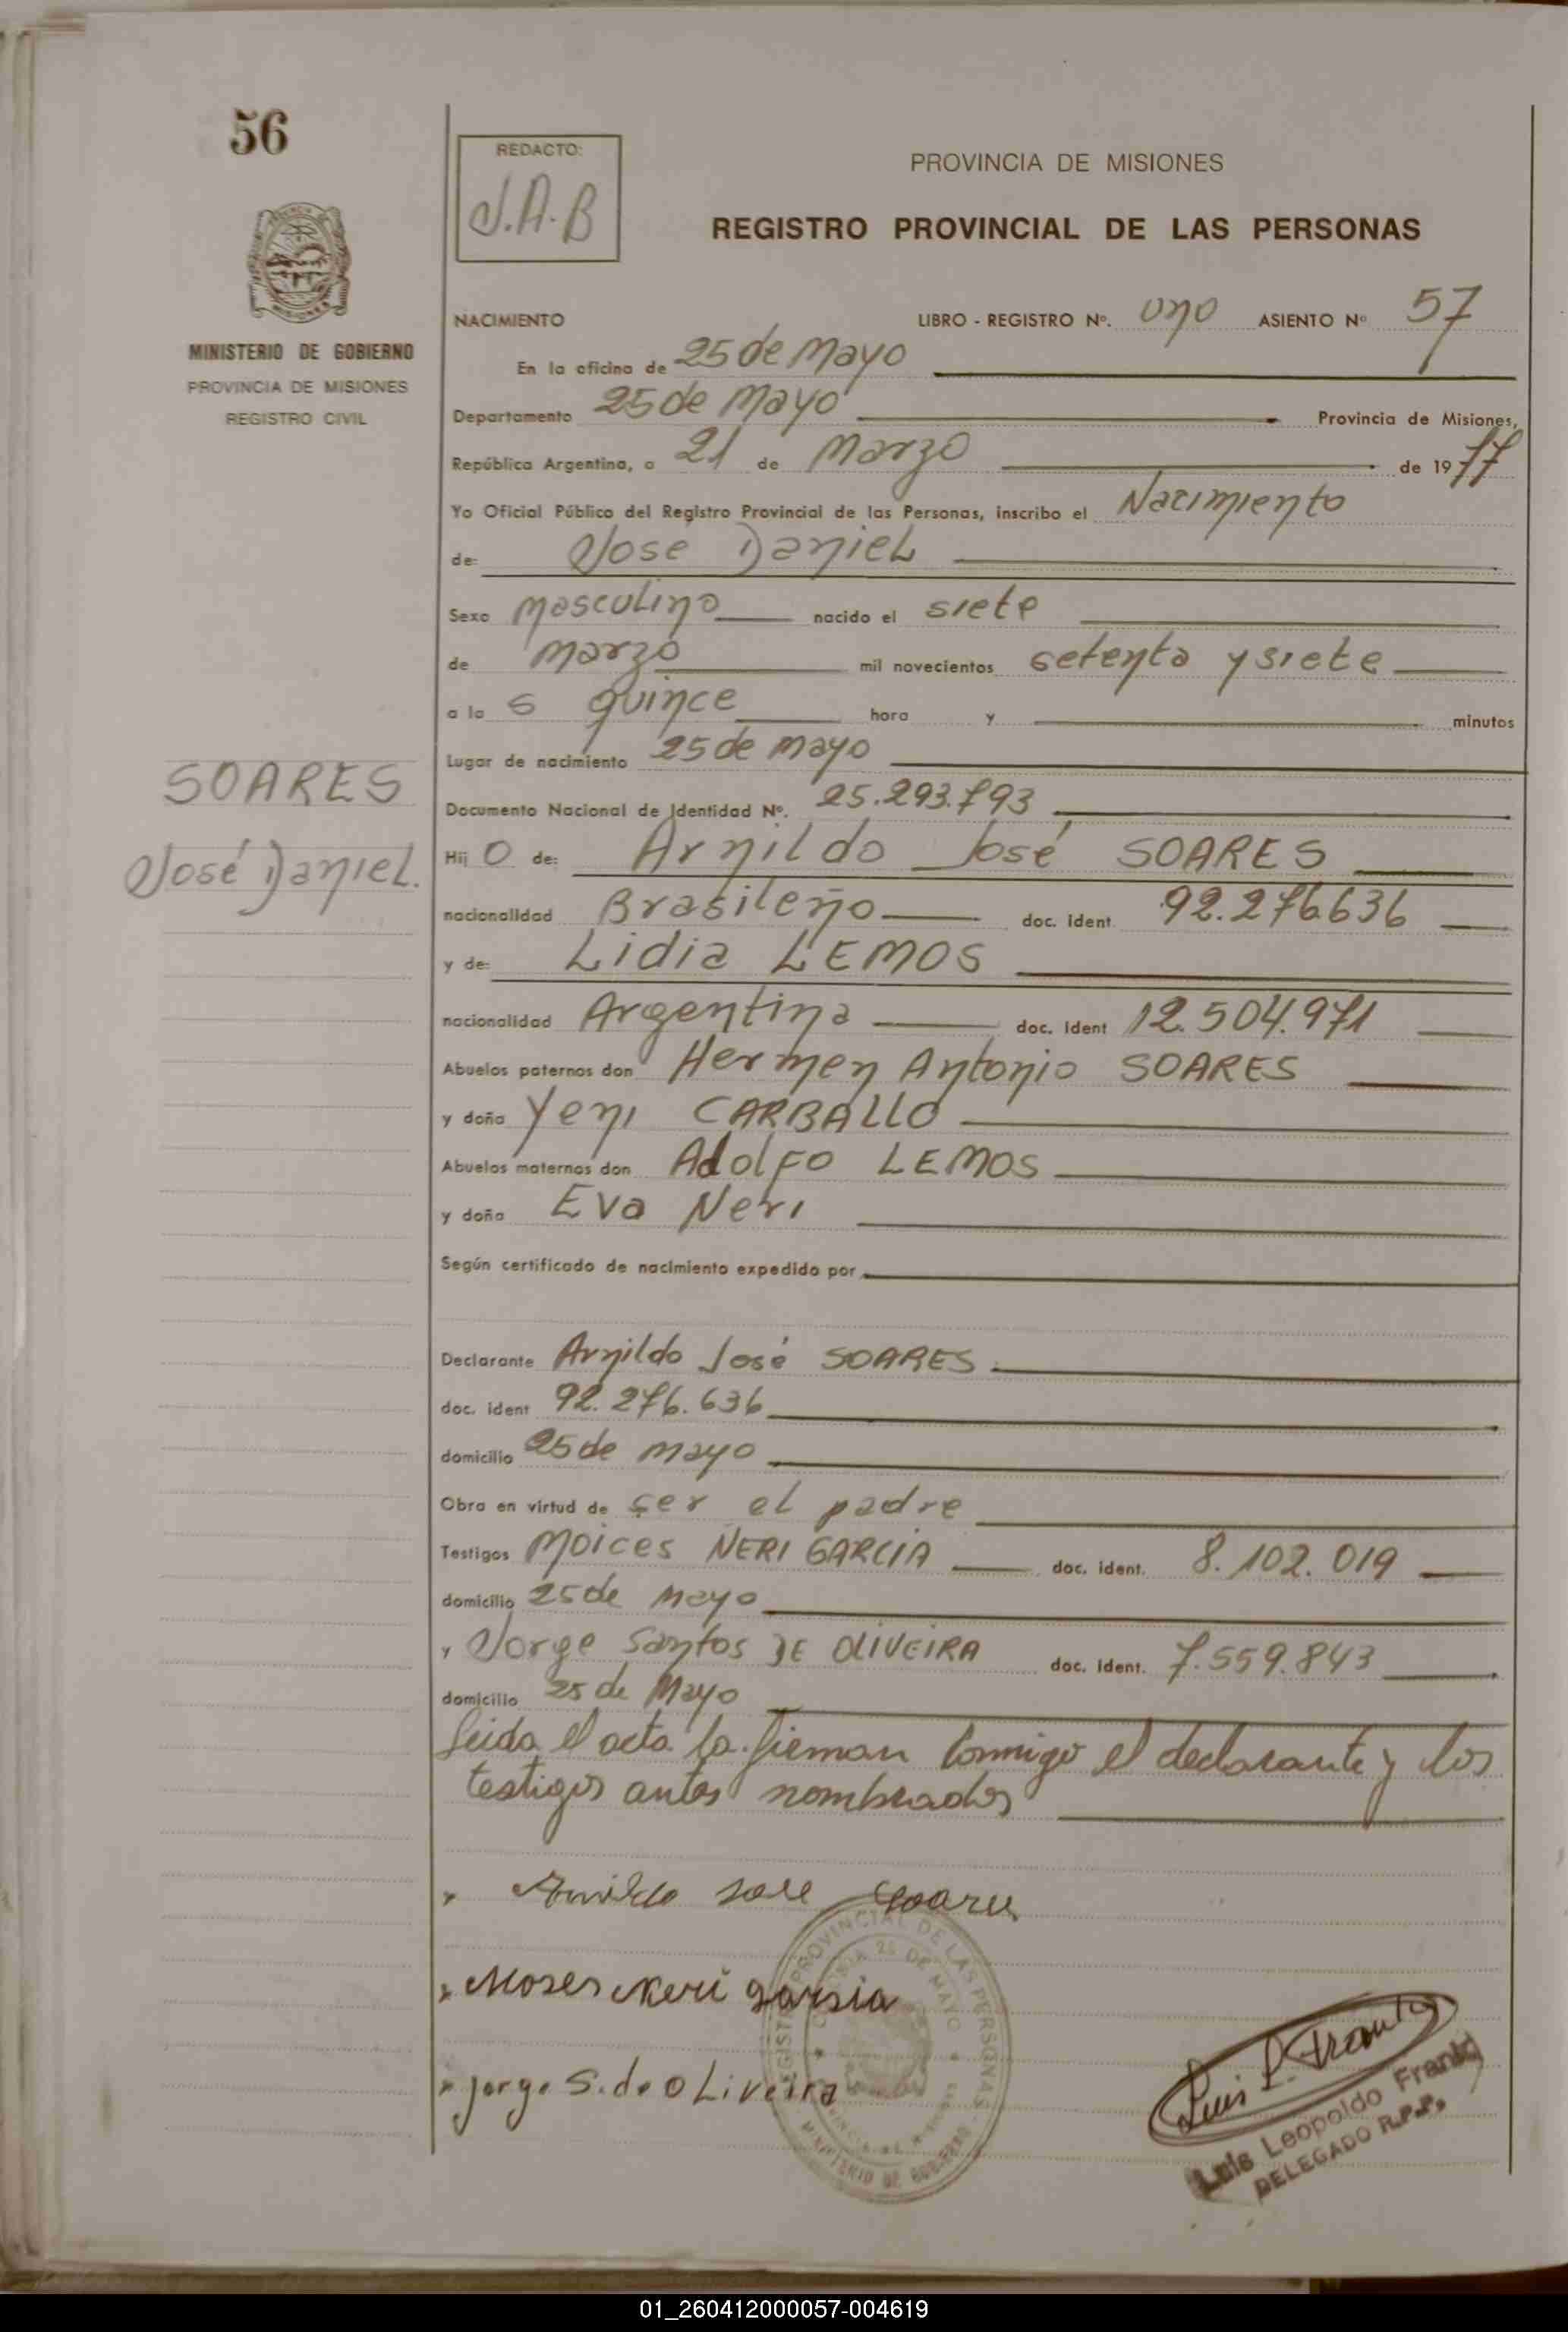 56
REDACTO:
J.A.B
PROVINCIA DE MISIONES
REGISTRO PROVINCIAL DE LAS PERSONAS
MINISTERIO DE GOBIERNO
PROVINCIA DE MISIONES
REGISTRO CIVIL
NACIMIENTO LIBRO - REGISTRO Nº. uno ASIENTO Nº 57
En la oficina de 25 de Mayo
Departamento 25 de Mayo Provincia de Misiones,
República Argentina, a 21 de Marzo de 1977
Yo Oficial Público del Registro Provincial de las Personas, inscribo el Nacimiento
de: Jose Daniel
Sexo masculino nacido el siete
de marzo mil novecientos setenta y siete
a la s quince hora y minutos
Lugar de nacimiento 25 de mayo
Documento Nacional de Identidad Nº. 25.293.793
SOARES
José Daniel.
Hij o de: Arnildo José SOARES
nacionalidad Brasileño doc. ident. 92.276636
y de: Lidia LEMOS
nacionalidad Argentina doc. ident 12.504.971
Abuelos paternos don Hermen Antonio SOARES
y doña Yeni CARBALLO
Abuelos maternos don Adolfo LEMOS
y doña Eva Neri
Según certificado de nacimiento expedido por
Declarante Arnildo José SOARES
doc. ident 92.276.636
domicilio 25 de mayo
Obra en virtud de ser el padre
Testigos Moices NERI GARCIA doc. ident. 8.102.019
domicilio 25 de Mayo
y Jorge Santos DE OLIVEIRA doc. ident. 7.559.843
domicilio 25 de Mayo
Leida el acta la firman conmigo el declarante y los
testigos antes nombrados
Arnildo Jose Soares
Moses Neri garsia
Jorge S. de oLiveira
REGISTRO PROVINCIAL DE LAS PERSONAS
COLONIA 25 DE MAYO
MINISTERIO DE GOBIERNO
Luis L. Frank
Luis Leopoldo Frank
DELEGADO R.P.P.
01_260412000057-004619